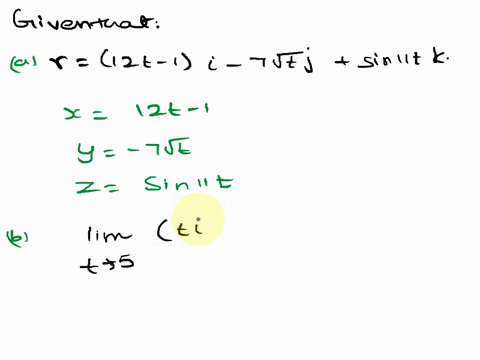 Given that:
(a) r = (12t-1) i - 7√t j + sin11t k.
x = 12t-1
y = -7√t
z = sin11t
(b) lim (ti
t→5